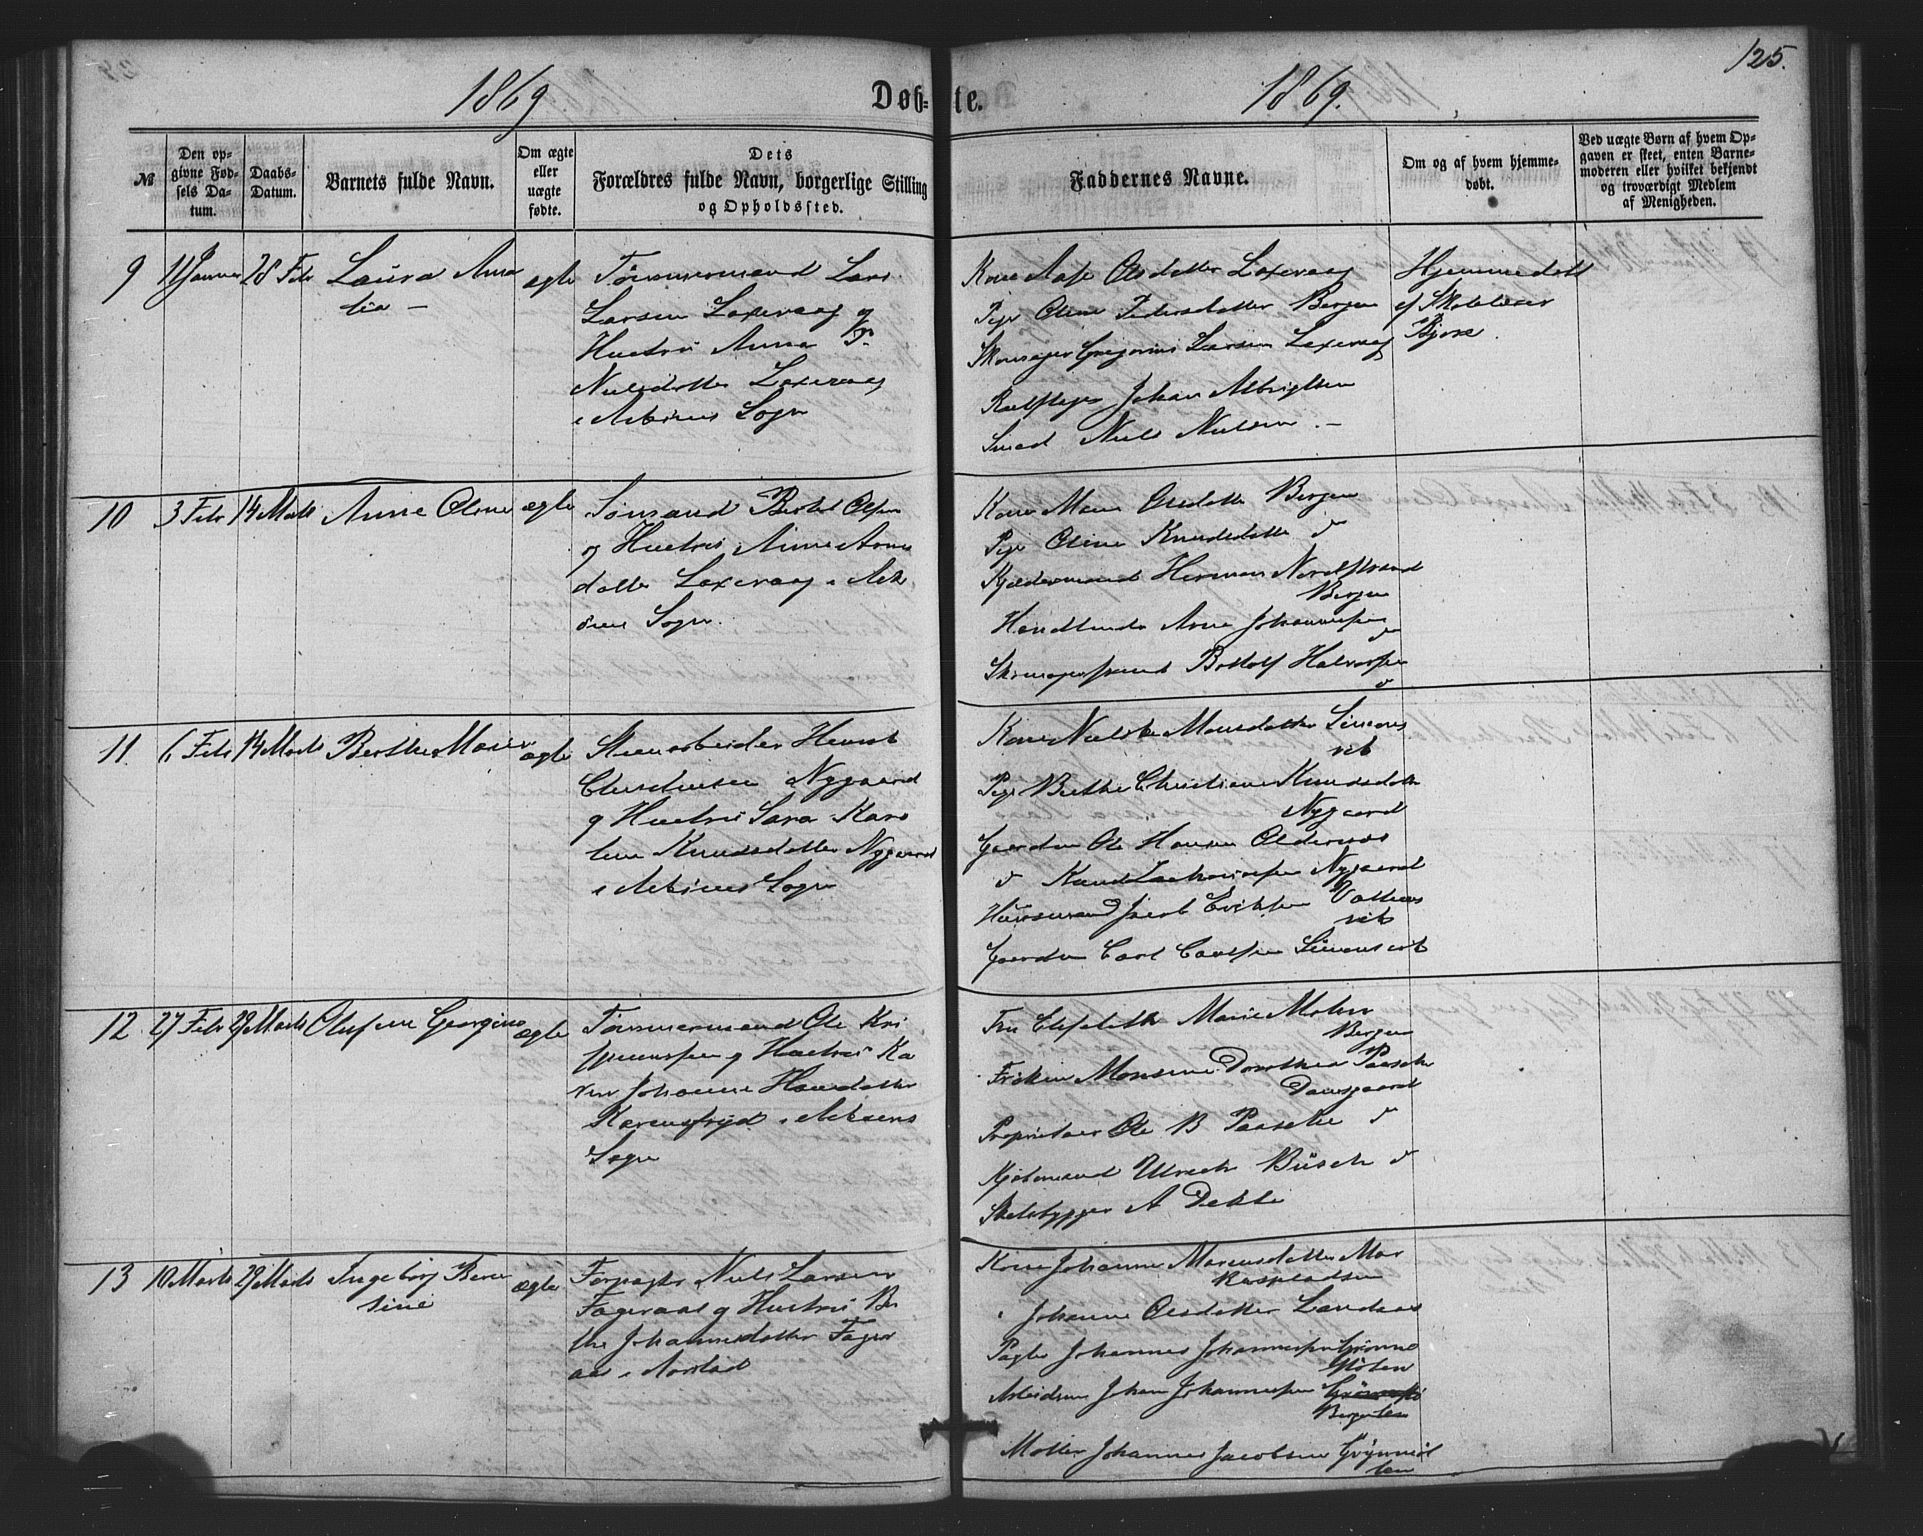 125.
1869 Døb=te. 1869.
№
Den op=
givne Fød=
sels Da=
tum.
Daabs=
Datum.
Barnets fulde Navn.
Om ægte
eller
uægte
fødte.
Dets
Forældres fulde Navn, borgerlige Stilling
og Opholdssted.
Faddernes Navne.
Om og af hvem hjemme=
døbt.
Ved uægte Børn af hvem Op=
gaven er skeet, enten Barne=
moderen eller hvilket bekjendt
og troværdigt Medlem
af Menigheden.
9 11 Januar 28 Febr Laura Ama
lia —
ægte
Tømmermand Lars
Larsen Laxevaag og
Hustru Anna P.
Nielsdatter Laxevaag
i Askøens Sogn
Kone Aase Olsdatter Laxevaag
Pige Oline Pedersdatter Bergen
Skomager Gregorius Larsen Laxevaag
Johan Albrigtsen
Smed Niels Nielsen. —
Hjemmedøbt
af Skolelærer
10 3 Febr 14 Marts Anne Oline ægte
Sømand Bertel Olsen
og Hustru Anne Arne
datter Laxevaag i Ask
øens Sogn.
Kone Mari Olsdatter Bergen
Pige Oline Knudsdatter do
Kjeldermand Herman Nordstrand
Bergen
Handlende Arne Johannessen
do
Skomagersvend Bottolf Halvorsen
do
11. 6 Febr 14 Marts Berthe Marie ægte
Steenarbeider
Christensen Nygaard
og Hustru Sara Karo
line Knudsdatter Nygaard
i Askøens Sogn
Kone Nielske Monsdatter Simons
vik
Pige Berthe Christiane Knudsdatter
Nygaard
Gaardm Ole Hansen Oldernæs
do Knud Zachariasen Nygaard
Huusmand Jacob Eriksen
vik
Gaardm Carl Carlsen Simonsvik
12 27 Febr 29 Marts Olufine Georgine ægte
Tømmermand Ole Kri
spinussen og Hustru Ka
ren Johanne Hansdatter
i Askøens
Sogn
Fru Elisabeth Marie Mohn
Bergen
Frøken Monsine Dorothea Paasche
Damsgaard
Proprietær Ole B Paasche do
Kjøbmand Ulrich Büsch do
Skibsbygger A Dekke
13 10 Marts 29 Marts Ingeborg Bene
sine
ægte
Forpagter Niels Larsen
Fageraas og Hustru Be
the Johannesdatter Fager
aas i Aarstad
Kone Johanne Monsdatter Mar
kuspladsen
" Johanne Olsdatter Landaas
Pagter Johannes Johannessen Grønne
støien
Arbeidsm Johan Johannessen
Bergen
Møller Johannes Jacobsen Grønnestø
len